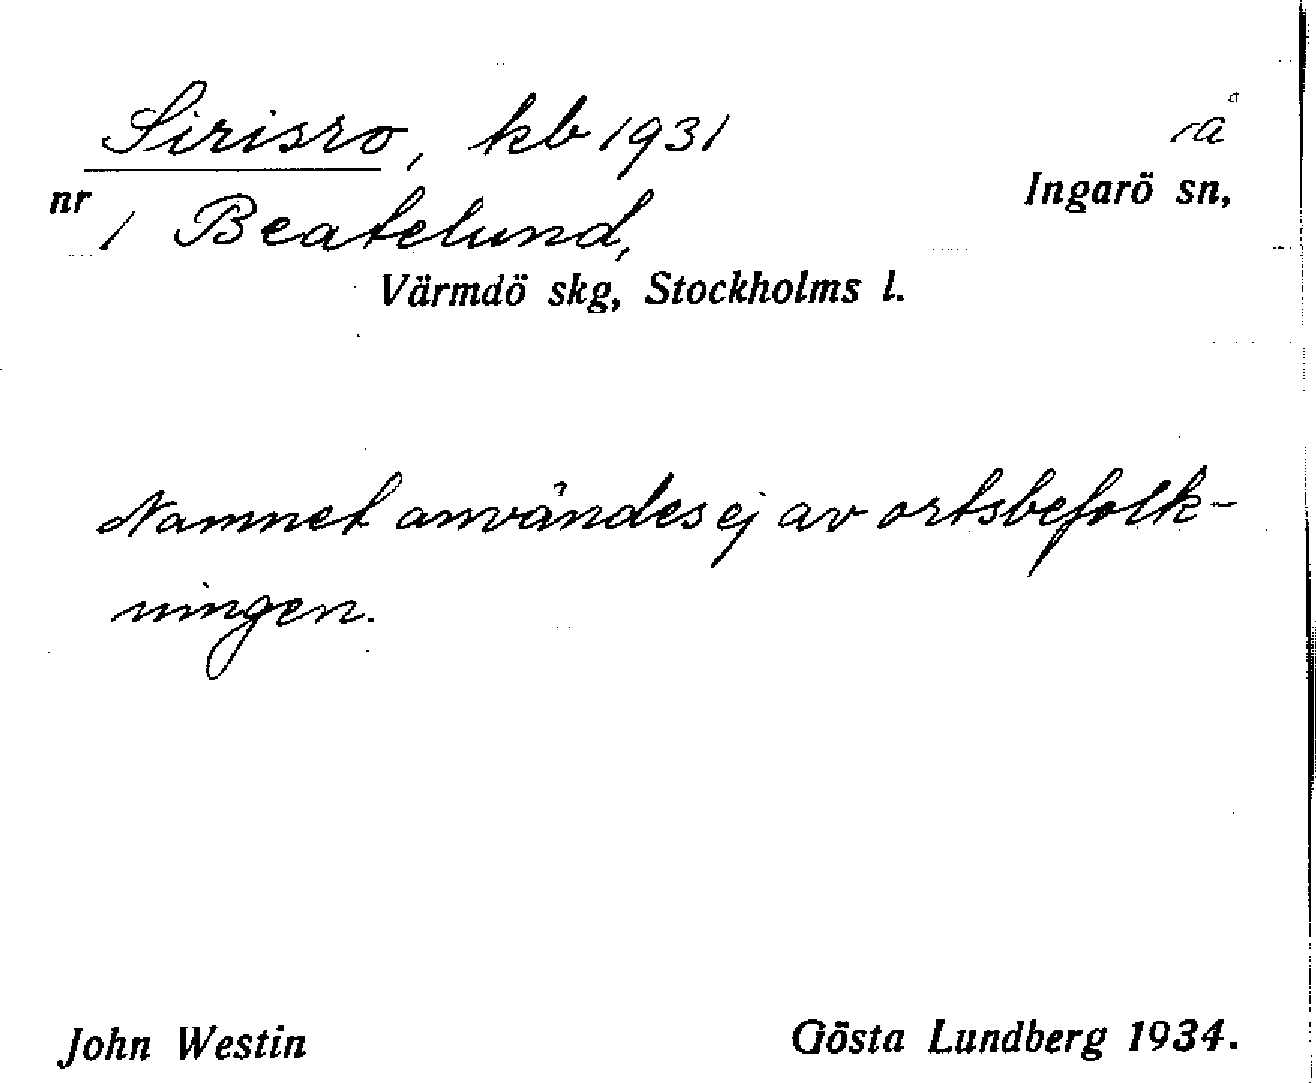 Sirisro, kb 1931
Ingarö sn,
nr 1 Beatelund,
Värmdö skg, Stockholms l.
Namnet användes ej av ortsbefolk-
ningen.
John Westin Gösta Lundberg 1934.